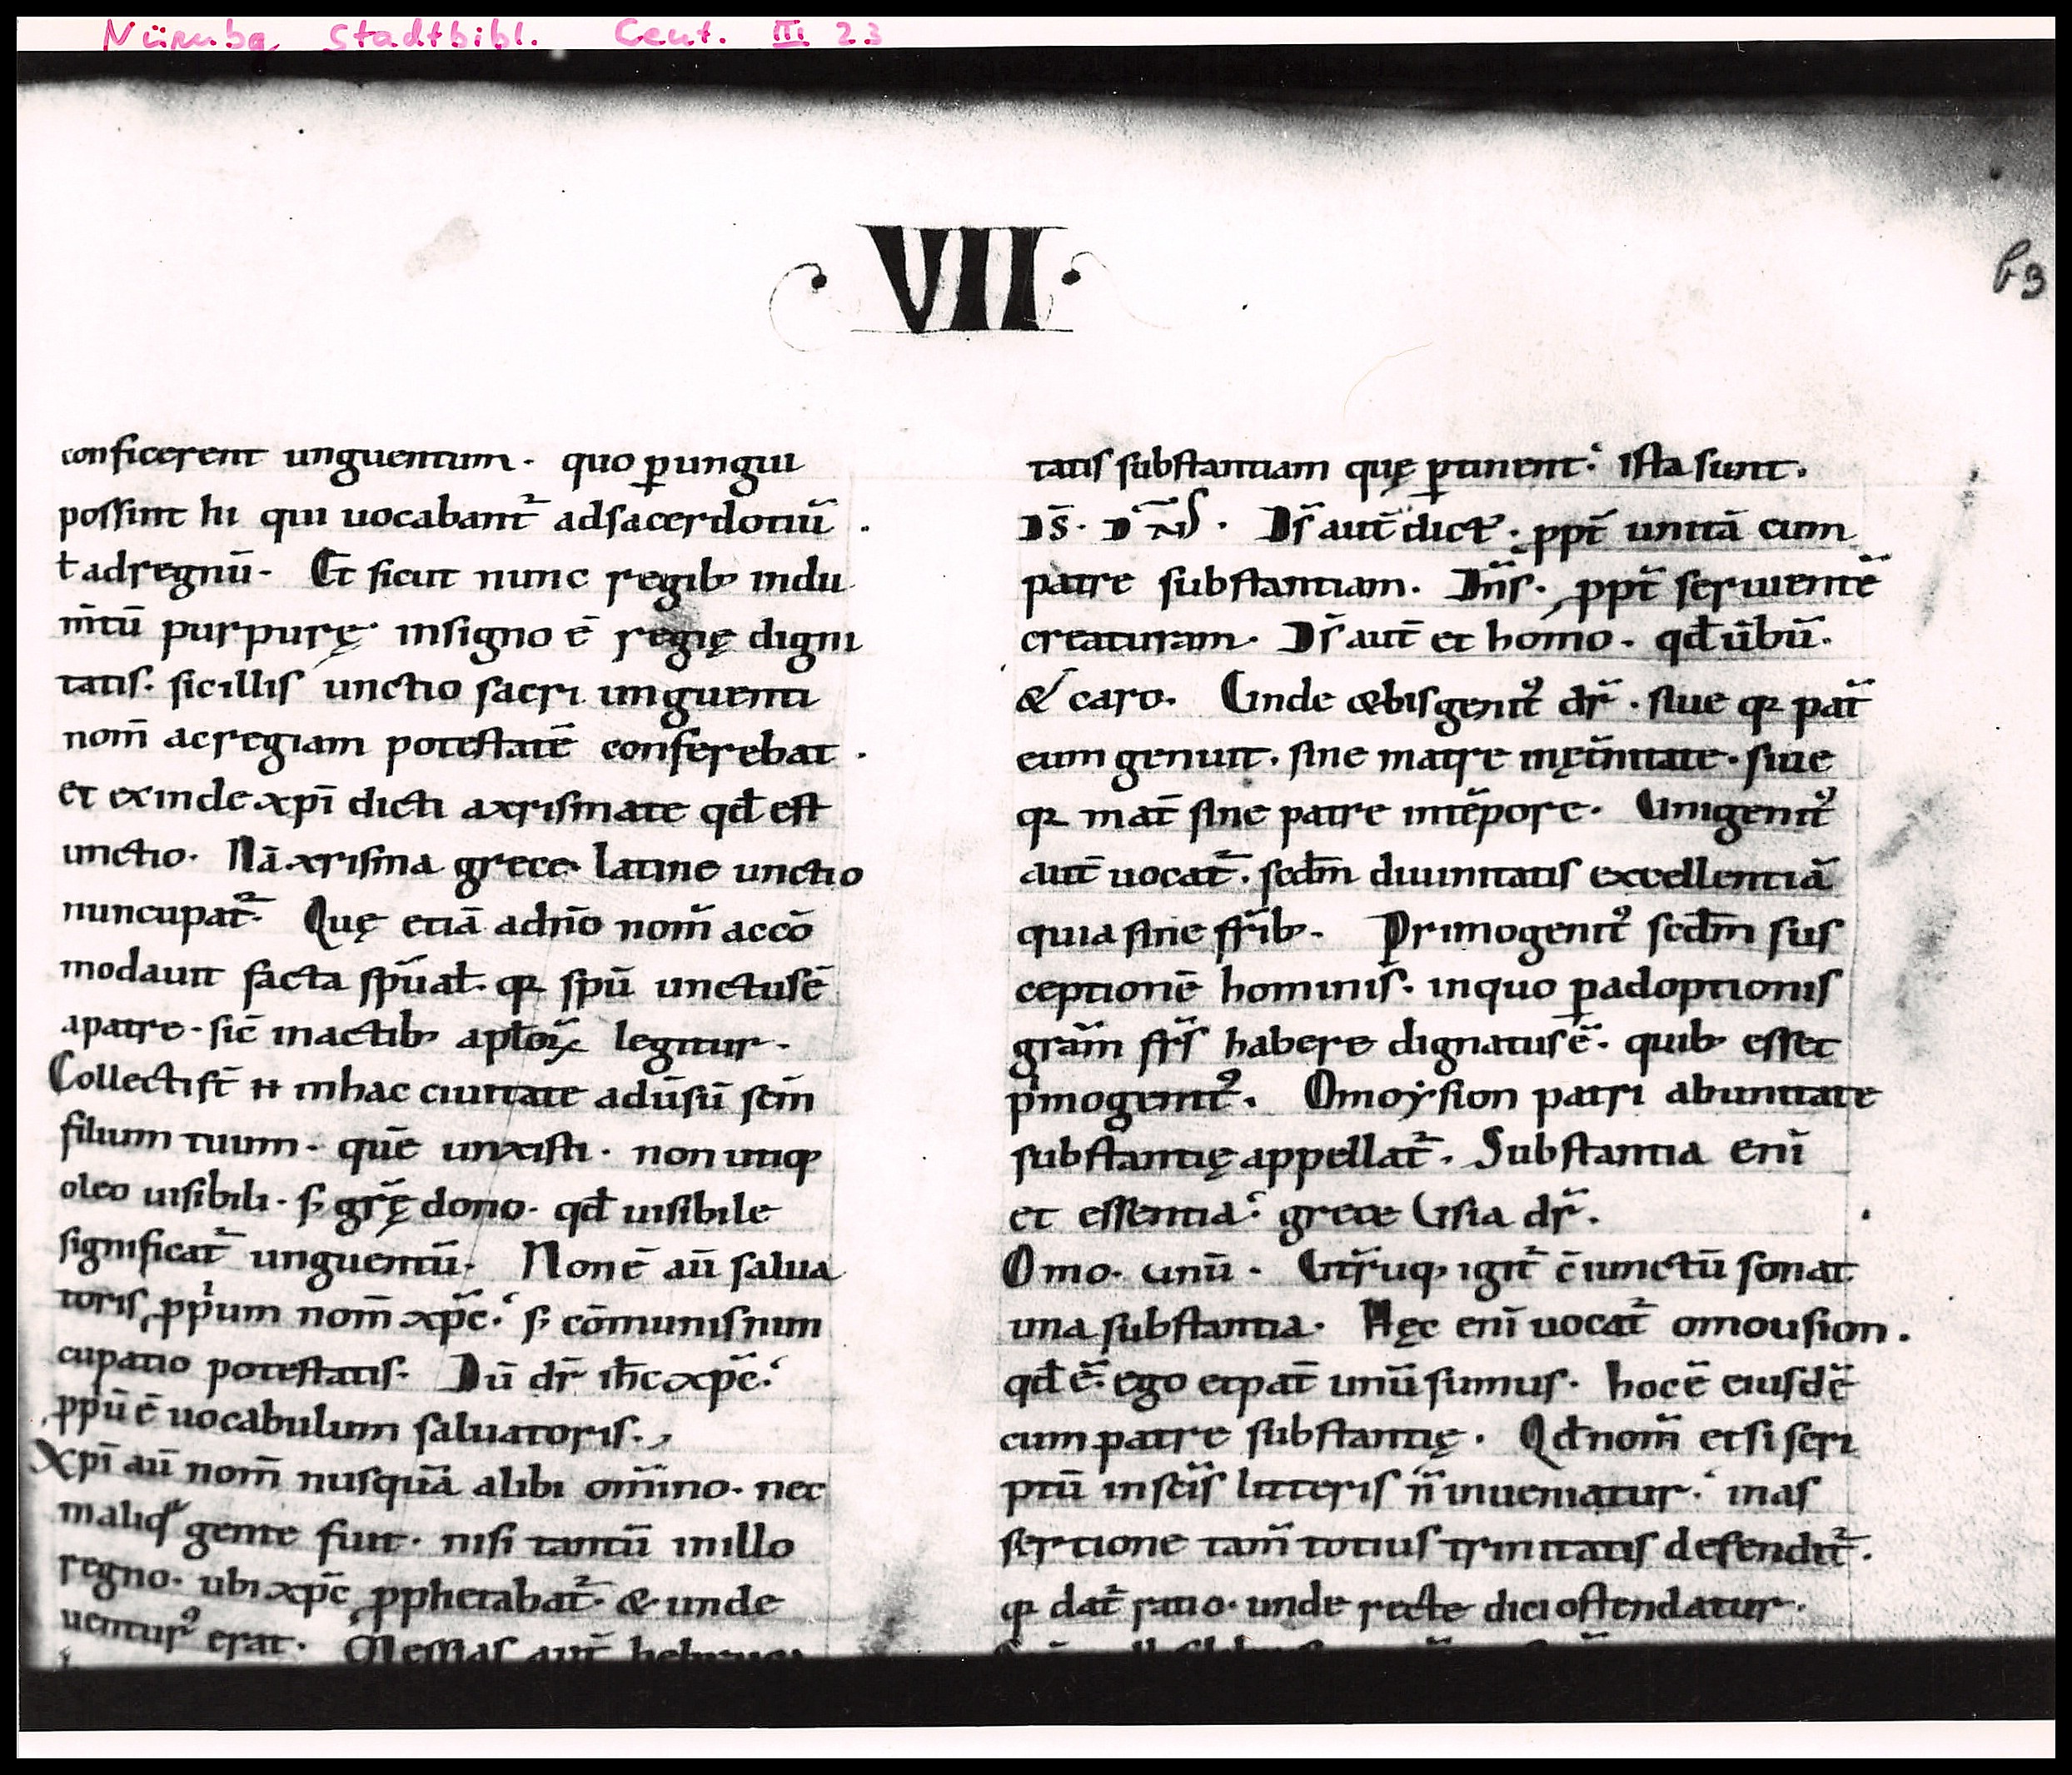 Nürnbg Stadtbibl. Cent. III 23
VII
63
conficerent unguentum. quo ꝑungui
possint hi qui uocabant᷑ adsacerdotiū.
ł adregnū. Et sicut nunc regibꝫ indu
m̄tū purpurę. insigno ē regię digni
tatis. sic illis unctio sacri unguenti
nom̄ ac regiam potestatē conferebat.
et exinde xp̄i dicti axrismate qđ est
unctio. Nā xrisma grece. latine unctio
nuncupat᷑. Quę etiā adn̄o nom̄ accō
modauit facta sp̄ual. qꝛ sp̄u unctus ē
apatre. sic̄ inactibꝫ aploꝝ legitur.
Collecti st̄ n̄ inhac ciuitate aduīsū sc̄m
filium tuum. quē unxisti. non utiqꝫ
oleo uisibili. sꝫ gr̄ę dono. qđ uisibile
significat᷑ unguentū. Non ē aū salua
toris ꝓpͥum nom̄ xp̄c. sꝫ cōmunis nun
cupatio potestatis. Dū dr̄ ih̄c xp̄c.
ꝓpū ē uocabulum saluatoris.
Xp̄i aū nom̄ nusquā alibi om̄ino. nec
inaliqͣ gente fuit. nisi tantū inillo
regno. ubi xp̄c ꝓphetabat᷑. & unde
uenturꝰ erat. Messias aut̄ hebraice
tatis substantiam quę ꝑtinent. ista sunt.
DS̄. DN̄S. Ds̄ aut̄ dict᷑. ꝓpt̄ unitā cum
patre substantiam. Dn̄s. ꝓpt̄ seruientē
creaturam. Ds̄ aut̄ et homo. qđ ūbū.
& caro. Unde & bisgenitꝰ dr̄. siue qꝛ pat̄
eum genuit. sine matre inęt̄nitate. siue
qꝛ mat̄ sine patre intēpore. Unigenitꝰ
aut̄ uocat᷑. scdm̄ diuinitatis excellentiā
quia sine fr̄ibꝫ. Primogenitꝰ scdm̄ sus
ceptionē hominis. inquo ꝑadoptionis
grām fr̄s habere dignatus ē. quibꝫ esset
pͥmogenitꝰ. Omoysion patri abunitate
substantię appellat᷑. Substantia enī
et essentia. grece Usia dr̄.
Omo. unū. Utr̄uqꝫ igit᷑ c̄iunctū sonat
una substantia. Hęc enī uocat᷑ omousion.
qđ ē. ego et pat̄ unū sumus. hoc ē eiusdē
cum patre substantię. Qđ nom̄ etsi scri
ptū in sc̄is litteris n̄ inueniatur. inas
sertione tam̄ totius trinitatis defendit᷑.
qꝛ dat᷑ ratio. unde recte dici ostendatur.